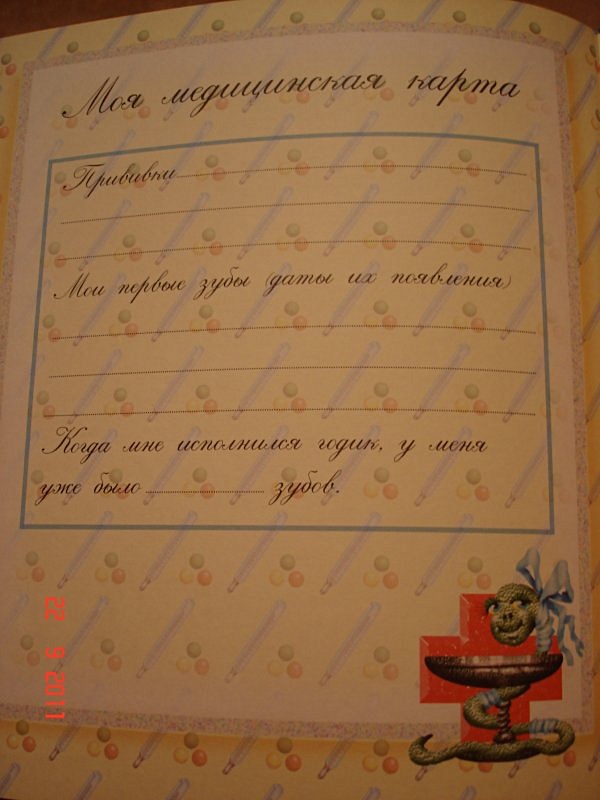 Моя медицинская карта
Прививки
Мои первые зубы (даты их появления)
Когда мне исполнился годик, у меня
уже было зубов.
22 9 2011